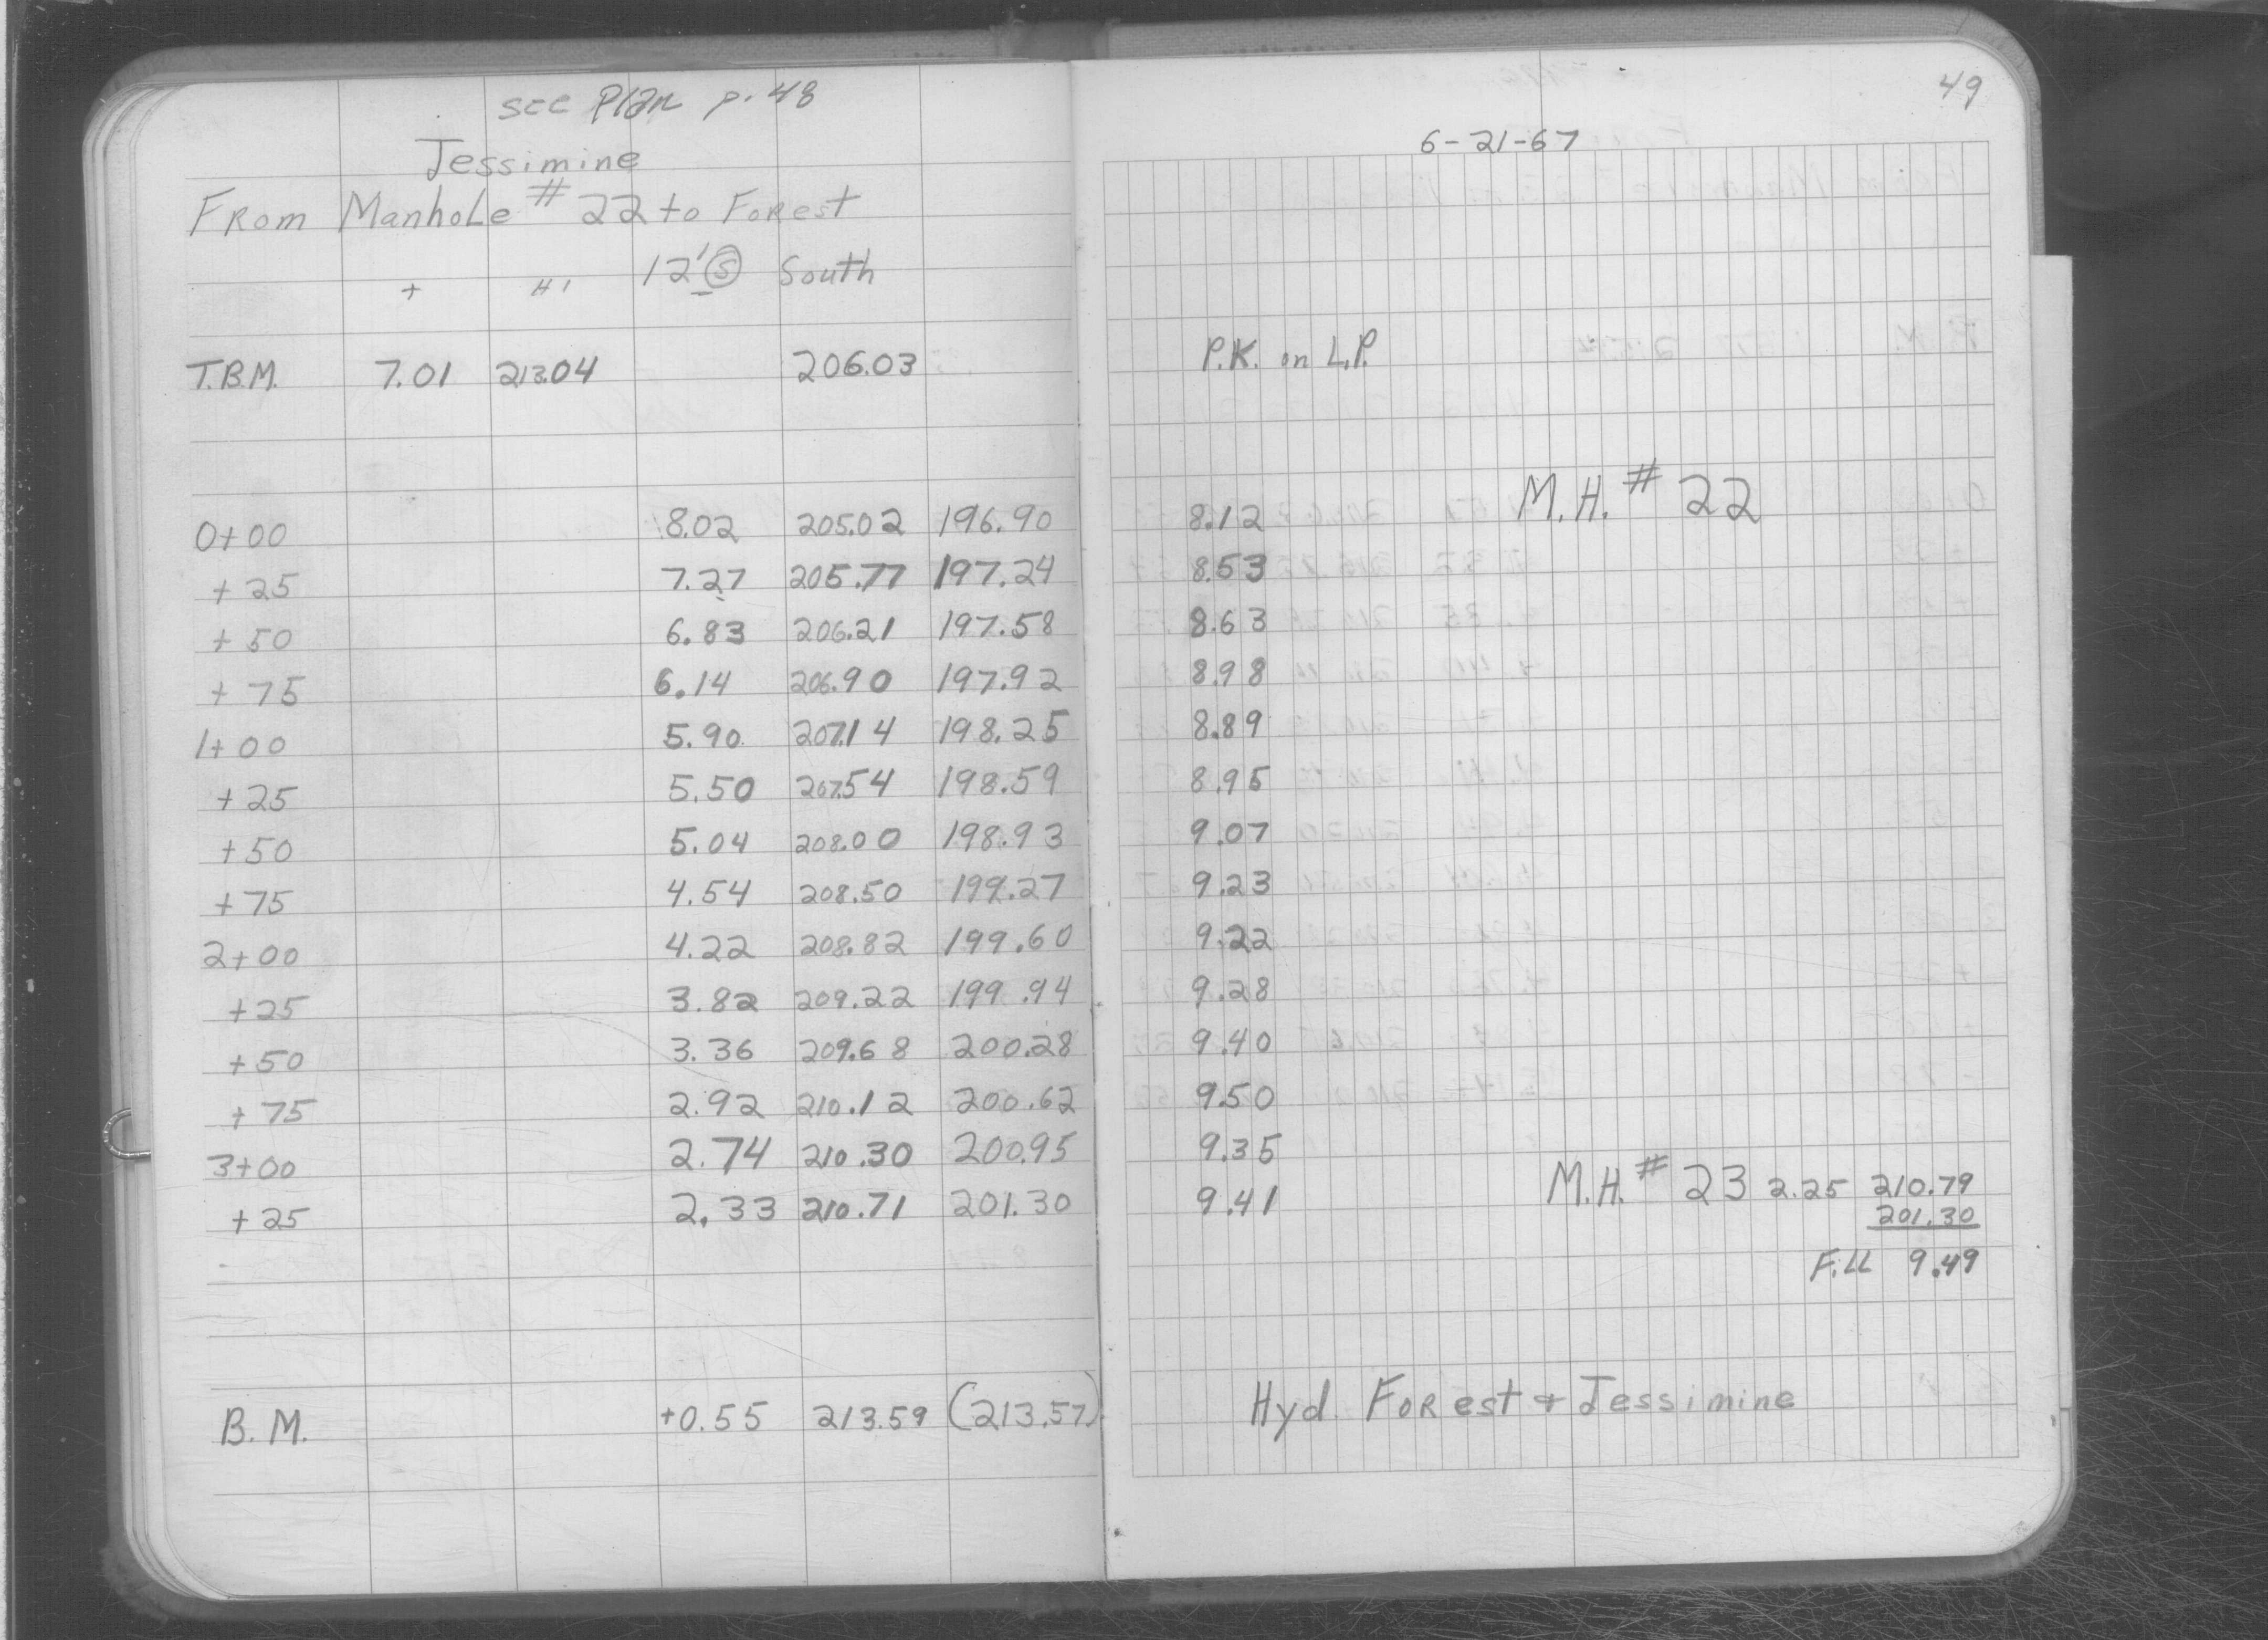 see Plan p. 48
49
6-21-67
Jessimine
From Manhole # 22 to Forest
12' Ⓢ South
+ HI -
T.B.M. 7.01 213.04 206.03 P.K. on L.P.
0+00 8.02 205.02 196.90 8.12 M.H. # 22
+25 7.27 205.77 197.24 8.53
+50 6.83 206.21 197.58 8.63
+75 6.14 206.90 197.92 8.98
1+00 5.90 207.14 198.25 8.89
+25 5.50 207.54 198.59 8.95
+50 5.04 208.00 198.93 9.07
+75 4.54 208.50 199.27 9.23
2+00 4.22 208.82 199.60 9.22
+25 3.82 209.22 199.94 9.28
+50 3.36 209.68 200.28 9.40
+75 2.92 210.12 200.62 9.50
3+00 2.74 210.30 200.95 9.35
+25 2.33 210.71 201.30 9.41 M.H. # 23 2.25 210.79
201.30
Fill 9.49
B.M. +0.55 213.59 (213.57) Hyd. Forest + Jessimine